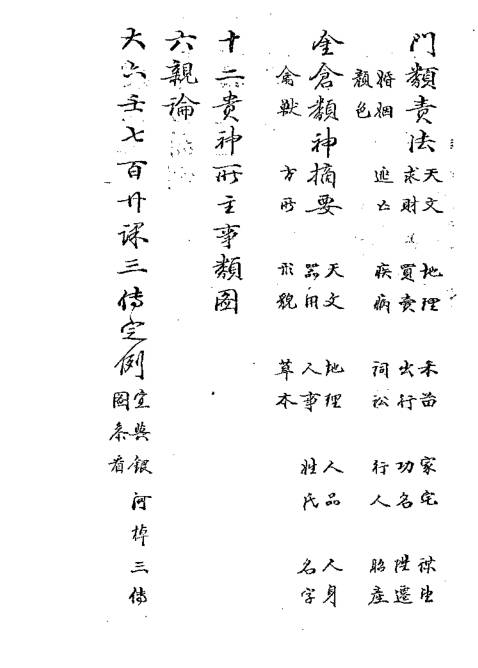 門類責法
天文 地理 禾苗 家宅 謀生
求財 買賣 出行 功名 陞遷
婚姻 逃亡 疾病 詞訟 行人 胎產
顏色
金倉類神摘要
天文 地理 人品 人身
器用 人事 姓氏 名字
禽獸 方所 形貌 草木
十二貴神所主事類圖
六親論
大六壬七百廿課三傳定例
宜與銀河棹三傳
圖參看